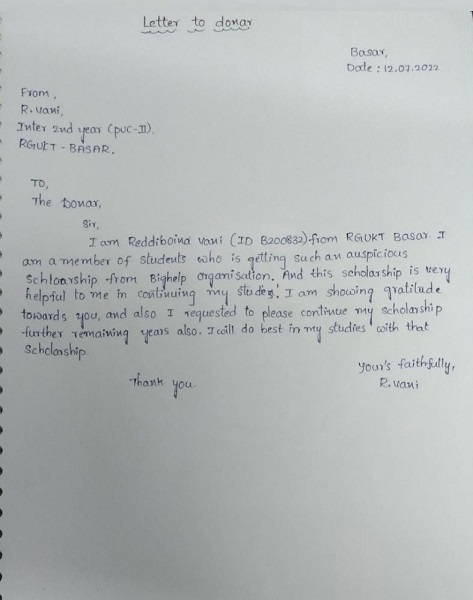 Letter to donar
Basar,
Date : 12.07.2022
From,
R. Vani,
Inter 2nd year (PUC-II).
RGUKT - BASAR.
TO,
The Donar,
Sir,
I am Reddiboina Vani (ID B200832) from RGUKT Basar. I
am a member of students who is getting such an auspicious
Schloarship from Bighelp organisation. And this scholarship is very
helpful to me in continuing my studies. I am showing gratitude
towards you, and also I requested to please continue my scholarship
further remaining years also. I will do best in my studies with that
Scholarship
your's faithfully,
Thank you.
R. Vani